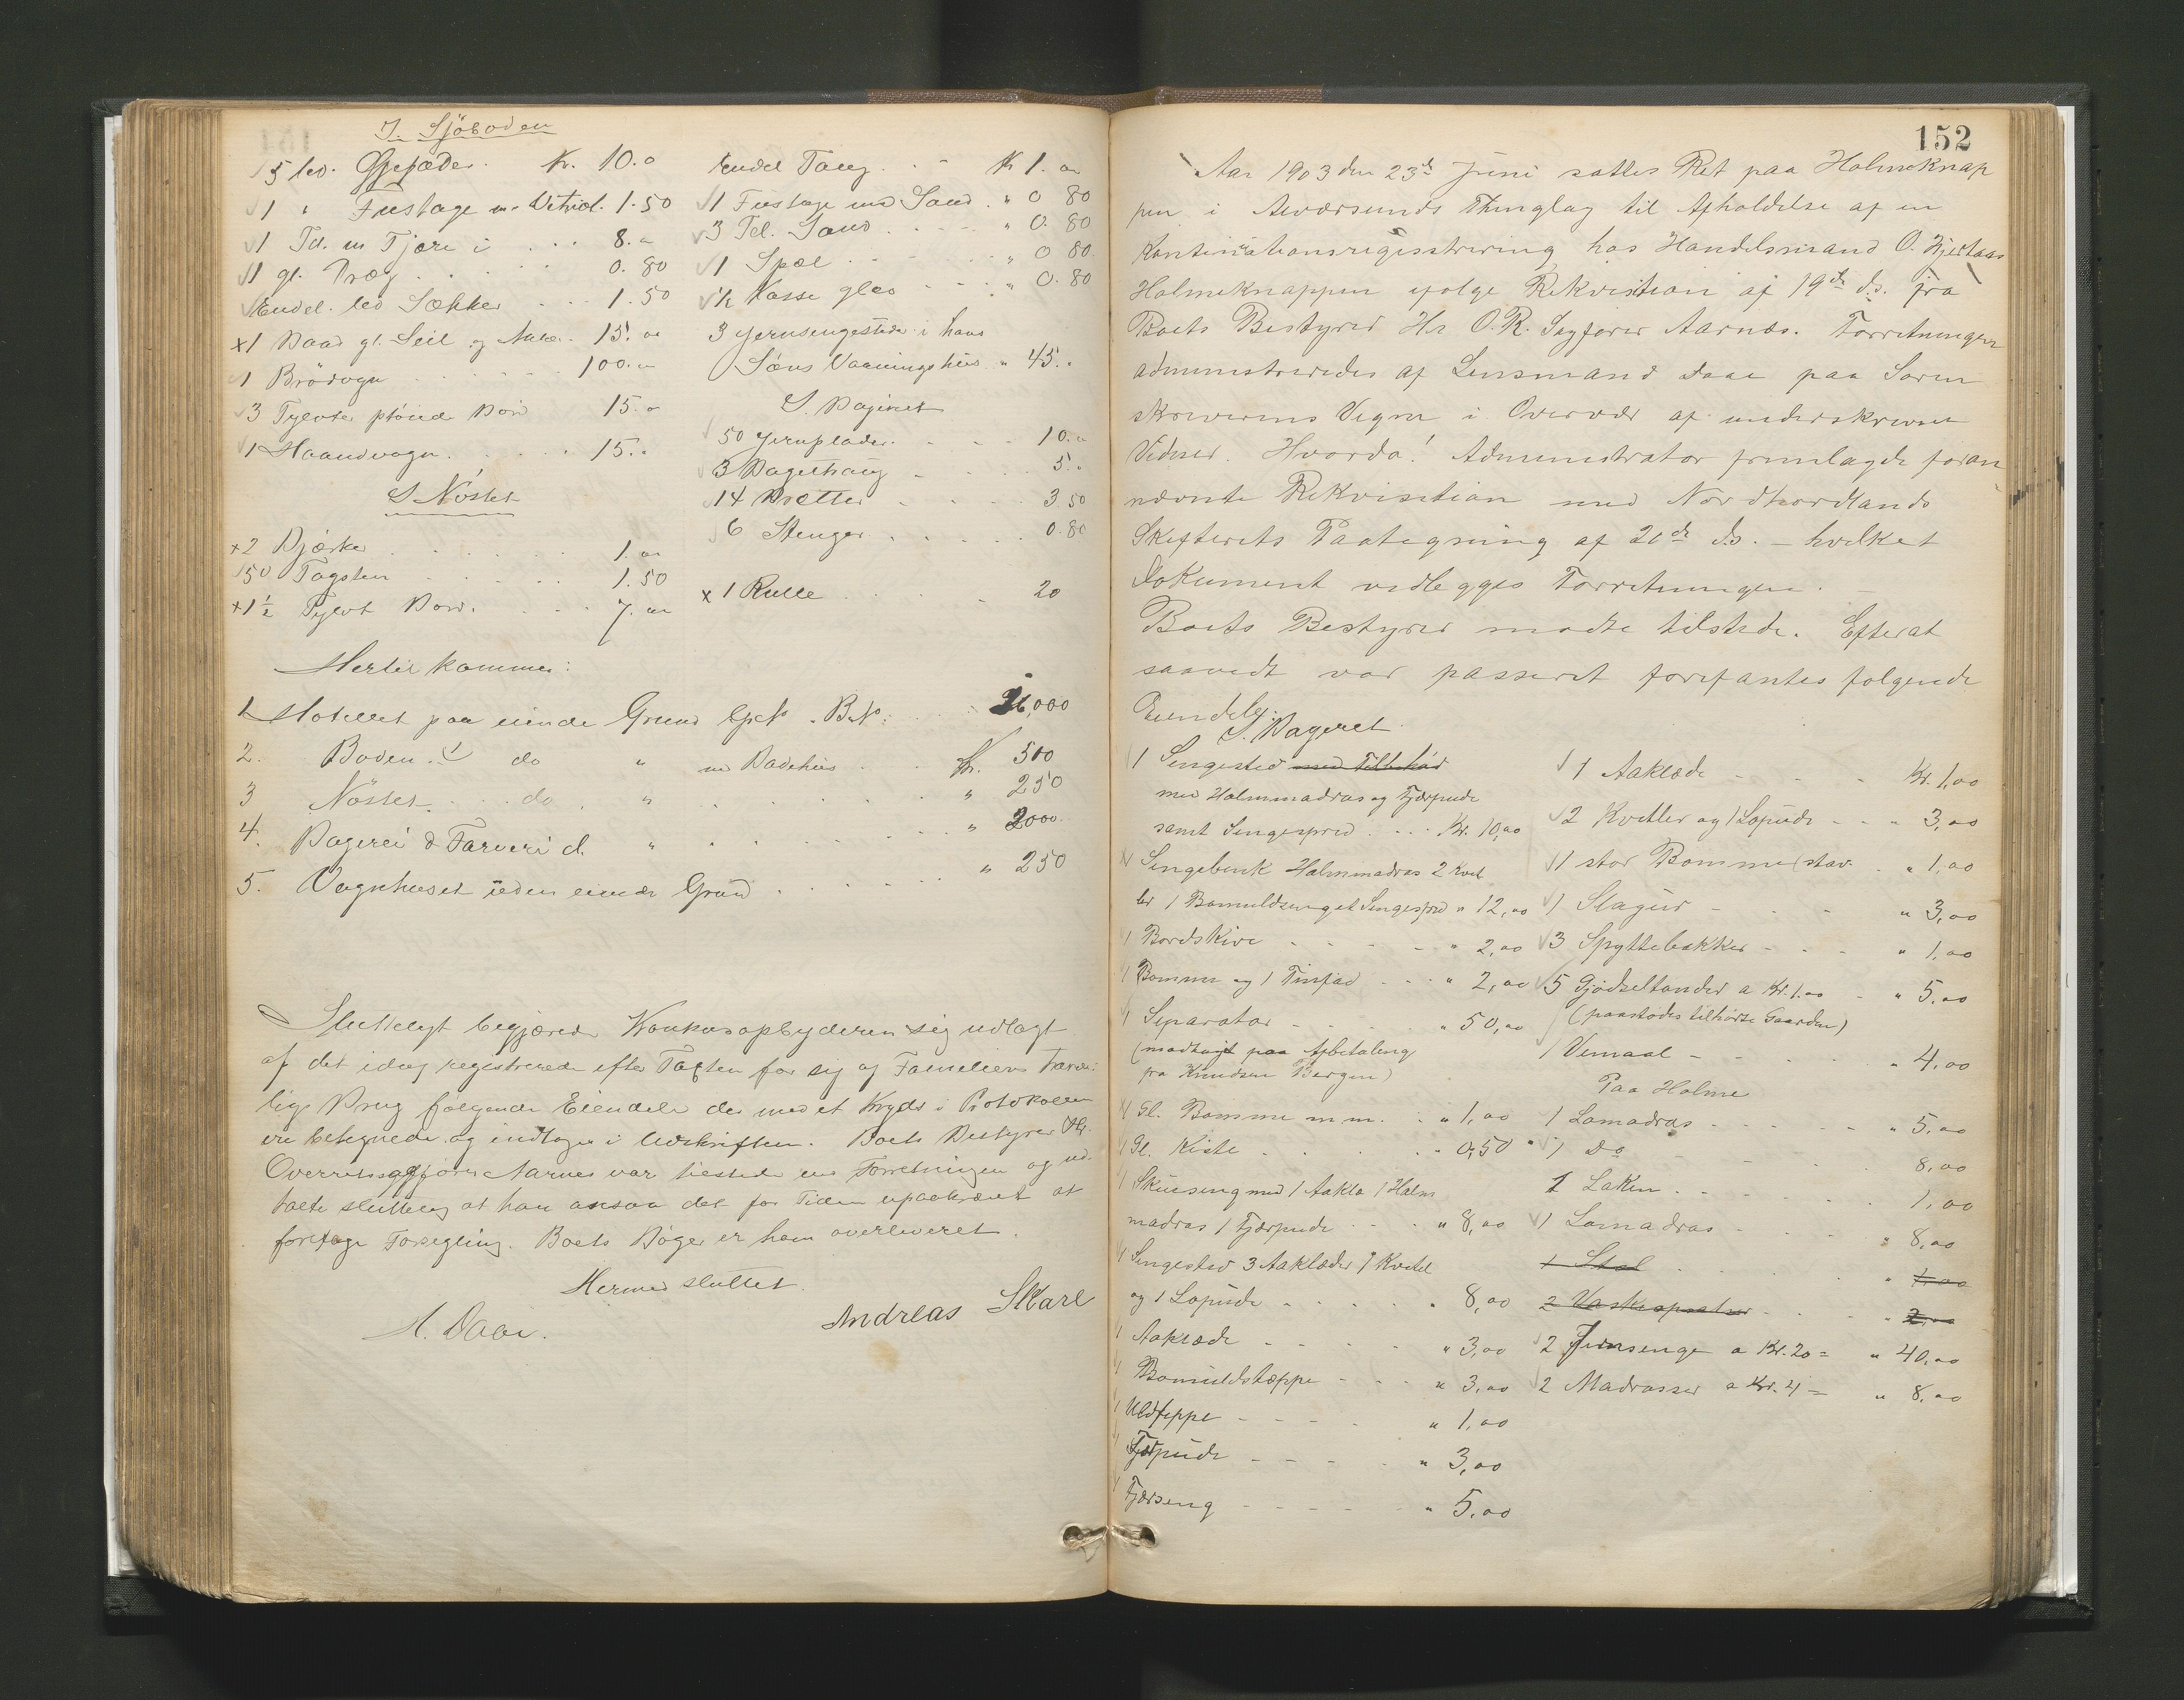 I. Sjöboden
5 led. Oljefæder. Kr. 10.0
1 " Fustage m. Vitriol. 1.50
1 Td. m Tjære i 8.00
1 gl. Dræg 0.80
Endel. led Sækker 1.50
x1 Baad gl. Seil og 15.00
1 Brödvogn 100.00
3 Tylvter plöiede Bord 15.0
1 Haandvogn 15.0
I Nöstet
x2 Bjørker 1.00
50 Tagsten 1.50
x1½ Tylvt Bord. 7.00
Endel Taug Kr 1.00
1 Fustage med Sand " 0 80
3 Tdl. Sand " 0. 80
1 Spæl " 0 80.
½ Kasse glas " 0. 80
3 Jernsengesteder i hans
Søns Vaaningshus " 45.0
I. Bageriet
50 Jernplader 10.0
3 Bagertraug 5.0
14 Bretter 3 50
6 Stenger 0.80
x 1 Rulle 20
Hertil kommer:
1 Hotellet paa eiende Grund Gno. Bno. 26,000
2. Boden do " m Badehus Kr. 500
3 Nöstet do " " 250
4. Bageri & Farveri d. " " 2000
5. Vognhuset uden eiende Grund " 250
Sluttelig begjærede Konkursopbyderen sig udlagt
af det idag registrerede efter Taxten for sig og Familiens tarve-
lige Brug følgende Eiendele der med et Kryds i Protokollen
ere betegnede og indtages i Udskriften. Boets Bestyrer Hr.
Overretssagfører Aarnes var tilstede ved Forretningen og ud-
talte sluttelig at han ansaa det for Tiden upaakrævet at
foretage Forsegling. Boets Bøger er ham overleveret.
Hermed sluttet.
A. Daae. Andreas Skare
152
Aar 1903 den 23de Juni sattes Ret paa Holmeknap
pen i Alværsunds Thinglag til Afholdelse af en
Kontinuationsregistrering hos Handelsmand O. Hjertaas
Holmeknappen ifølge Rekvisition af 19de ds. fra
Boets Bestyrer Hr O.R. Sagfører Aarnes. Forretningen
administreredes af Lensmand Daae paa Soren
skriverens Vegne i Overvær af underskrevne
Vidner. Hvorda! Administrator fremlagde foran
nævnte Rekvisition med Nordhordlands
Skifterets Paategning af 20de ds. – hvilket
Dokument vedlegges Forretningen. –
Boets Bestyrer mødte tilstede. Efterat
saavidt var passeret forefantes følgende
Eiendele:
I. Bageriet
1 Sengested med Tilbehør
med Halmmadras og Fjærpude
samt Sengespred Kr. 10,00
1 Sengebenk Halmmadras 2 Kvit
ler 1 Bomuldseng et Sengespred " 12,00
1 Bordskive " 2,00
1 Bomme og 1 Tinfad " 2,00
1 Separator " 50,00
(modtaget paa Afbetaling
fra Knudsen Bergen)
1 Gl. Bomme m.m. " 1,00
1 Gl. Kiste " 0,50
1 Skuvseng med 1 Aakla 1 Halm
madras 1 Fjærpude " 8,00
1 Sengested 3 Aaklæder 1 Kvitel
og 1 Lopude " 8,00
1 Aaklæde " 3,00
1 Bomuldstæppe " 3,00
1 Uldteppe " 1,00
1 Fjærpude " 3,00
1 Fjærseng " 5,00
1 Aaklæde Kr. 1,00
2 Kvitler og 1 Lopude " 3,00
1 stor Bomme (stav " 1,00
1 Slagur " 3,00
3 Spyttebakker " 1,00
5 Gjødseltønder a Kr. 1.00 " 5,00
(paastodes tilhøre Gaarden)
1 Vemaal " 4,00
Paa Holme
1 Lomadras " 5,00
1 Do 8,00
1 Laken 1,00
1 Lomadras " 8,00
1 Stol " 1,00
2 " 2,00
2 Jernsenge a Kr. 20 = " 40,00
2 Madrasser a Kr. 4 = " 8,00